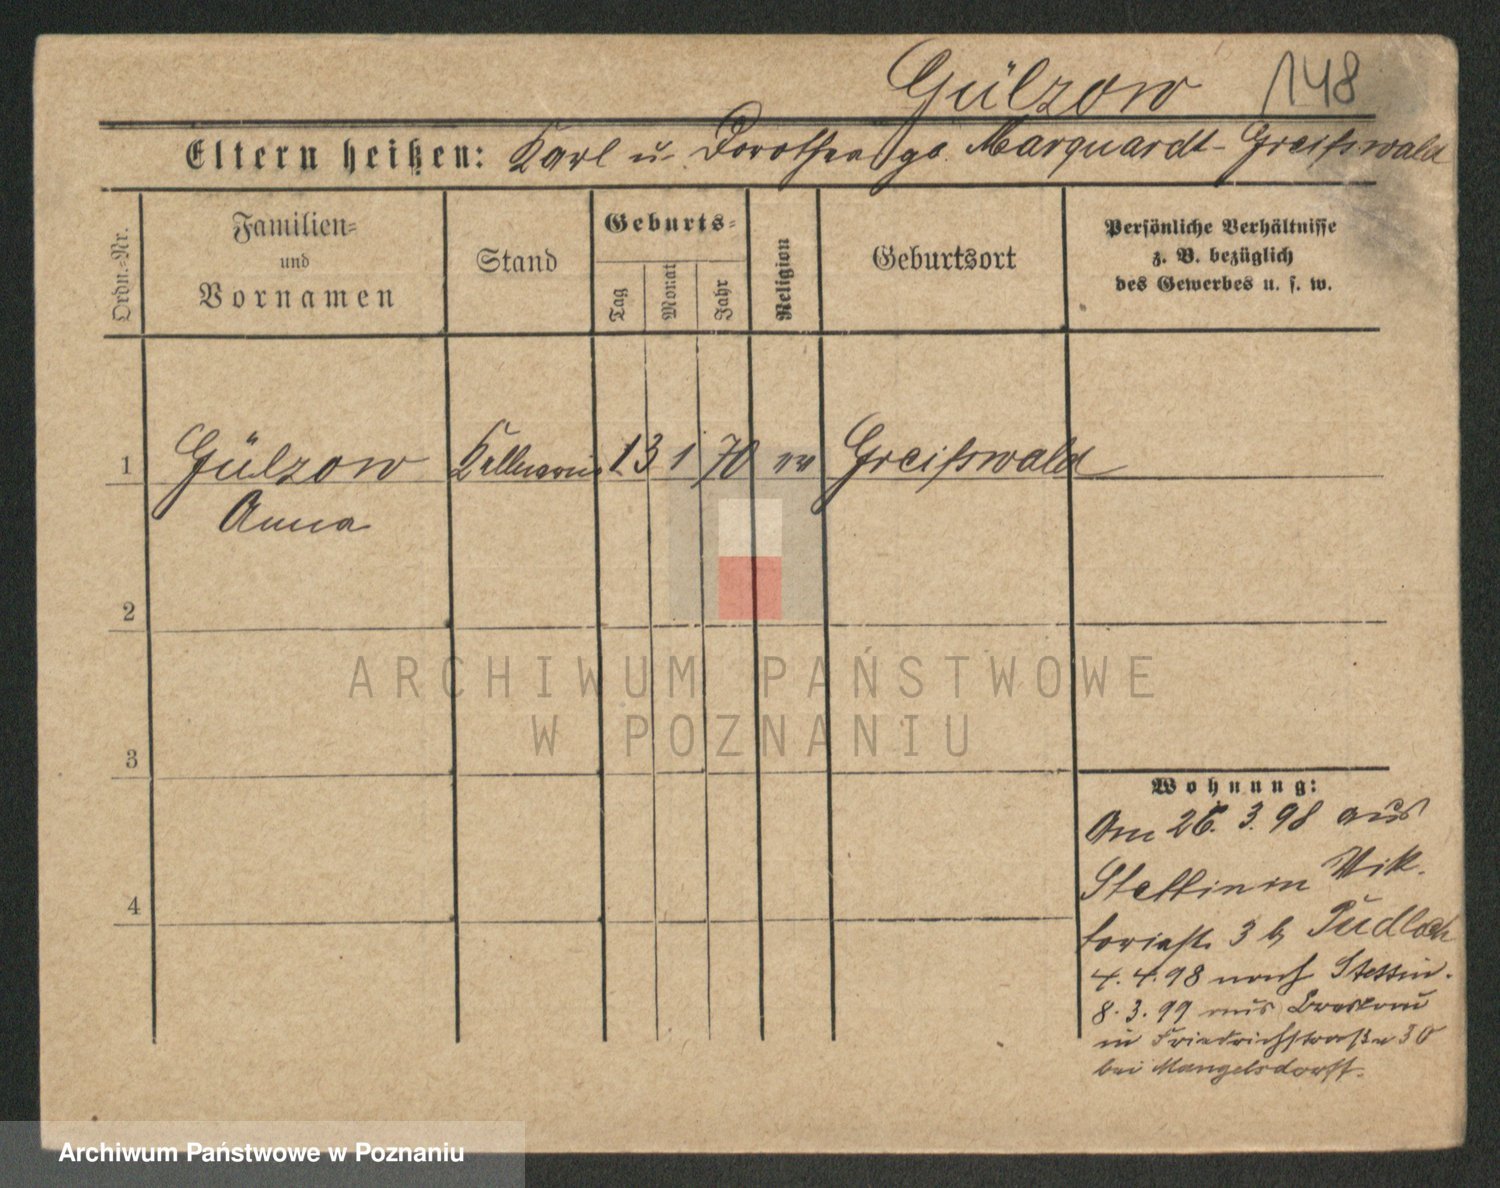 Gülzow 148
Eltern heißen: Karl u. Dorothea gb. Marquardt - Greifswald
Ordn.-Nr.
Familien-
und
Vornamen
Stand
Geburts-
Tag
Monat
Jahr
Religion
Geburtsort
Persönliche Verhältnisse
z. B. bezüglich
des Gewerbes u. s. w.
1 Gülzow Kellnerin 13 1 70 ev Greifswald
Anna
2
3
4
Wohnung:
Am 26. 3. 98 aus
Stettin in Vik.
toriastr. 3 b Pudlach
4. 4. 98 nach Stettin.
8. 3. 99 aus
in Friedrichstraße 30
bei Mangelsdorff.
ARCHIWUM PAŃSTWOWE
W POZNANIU
Archiwum Państwowe w Poznaniu